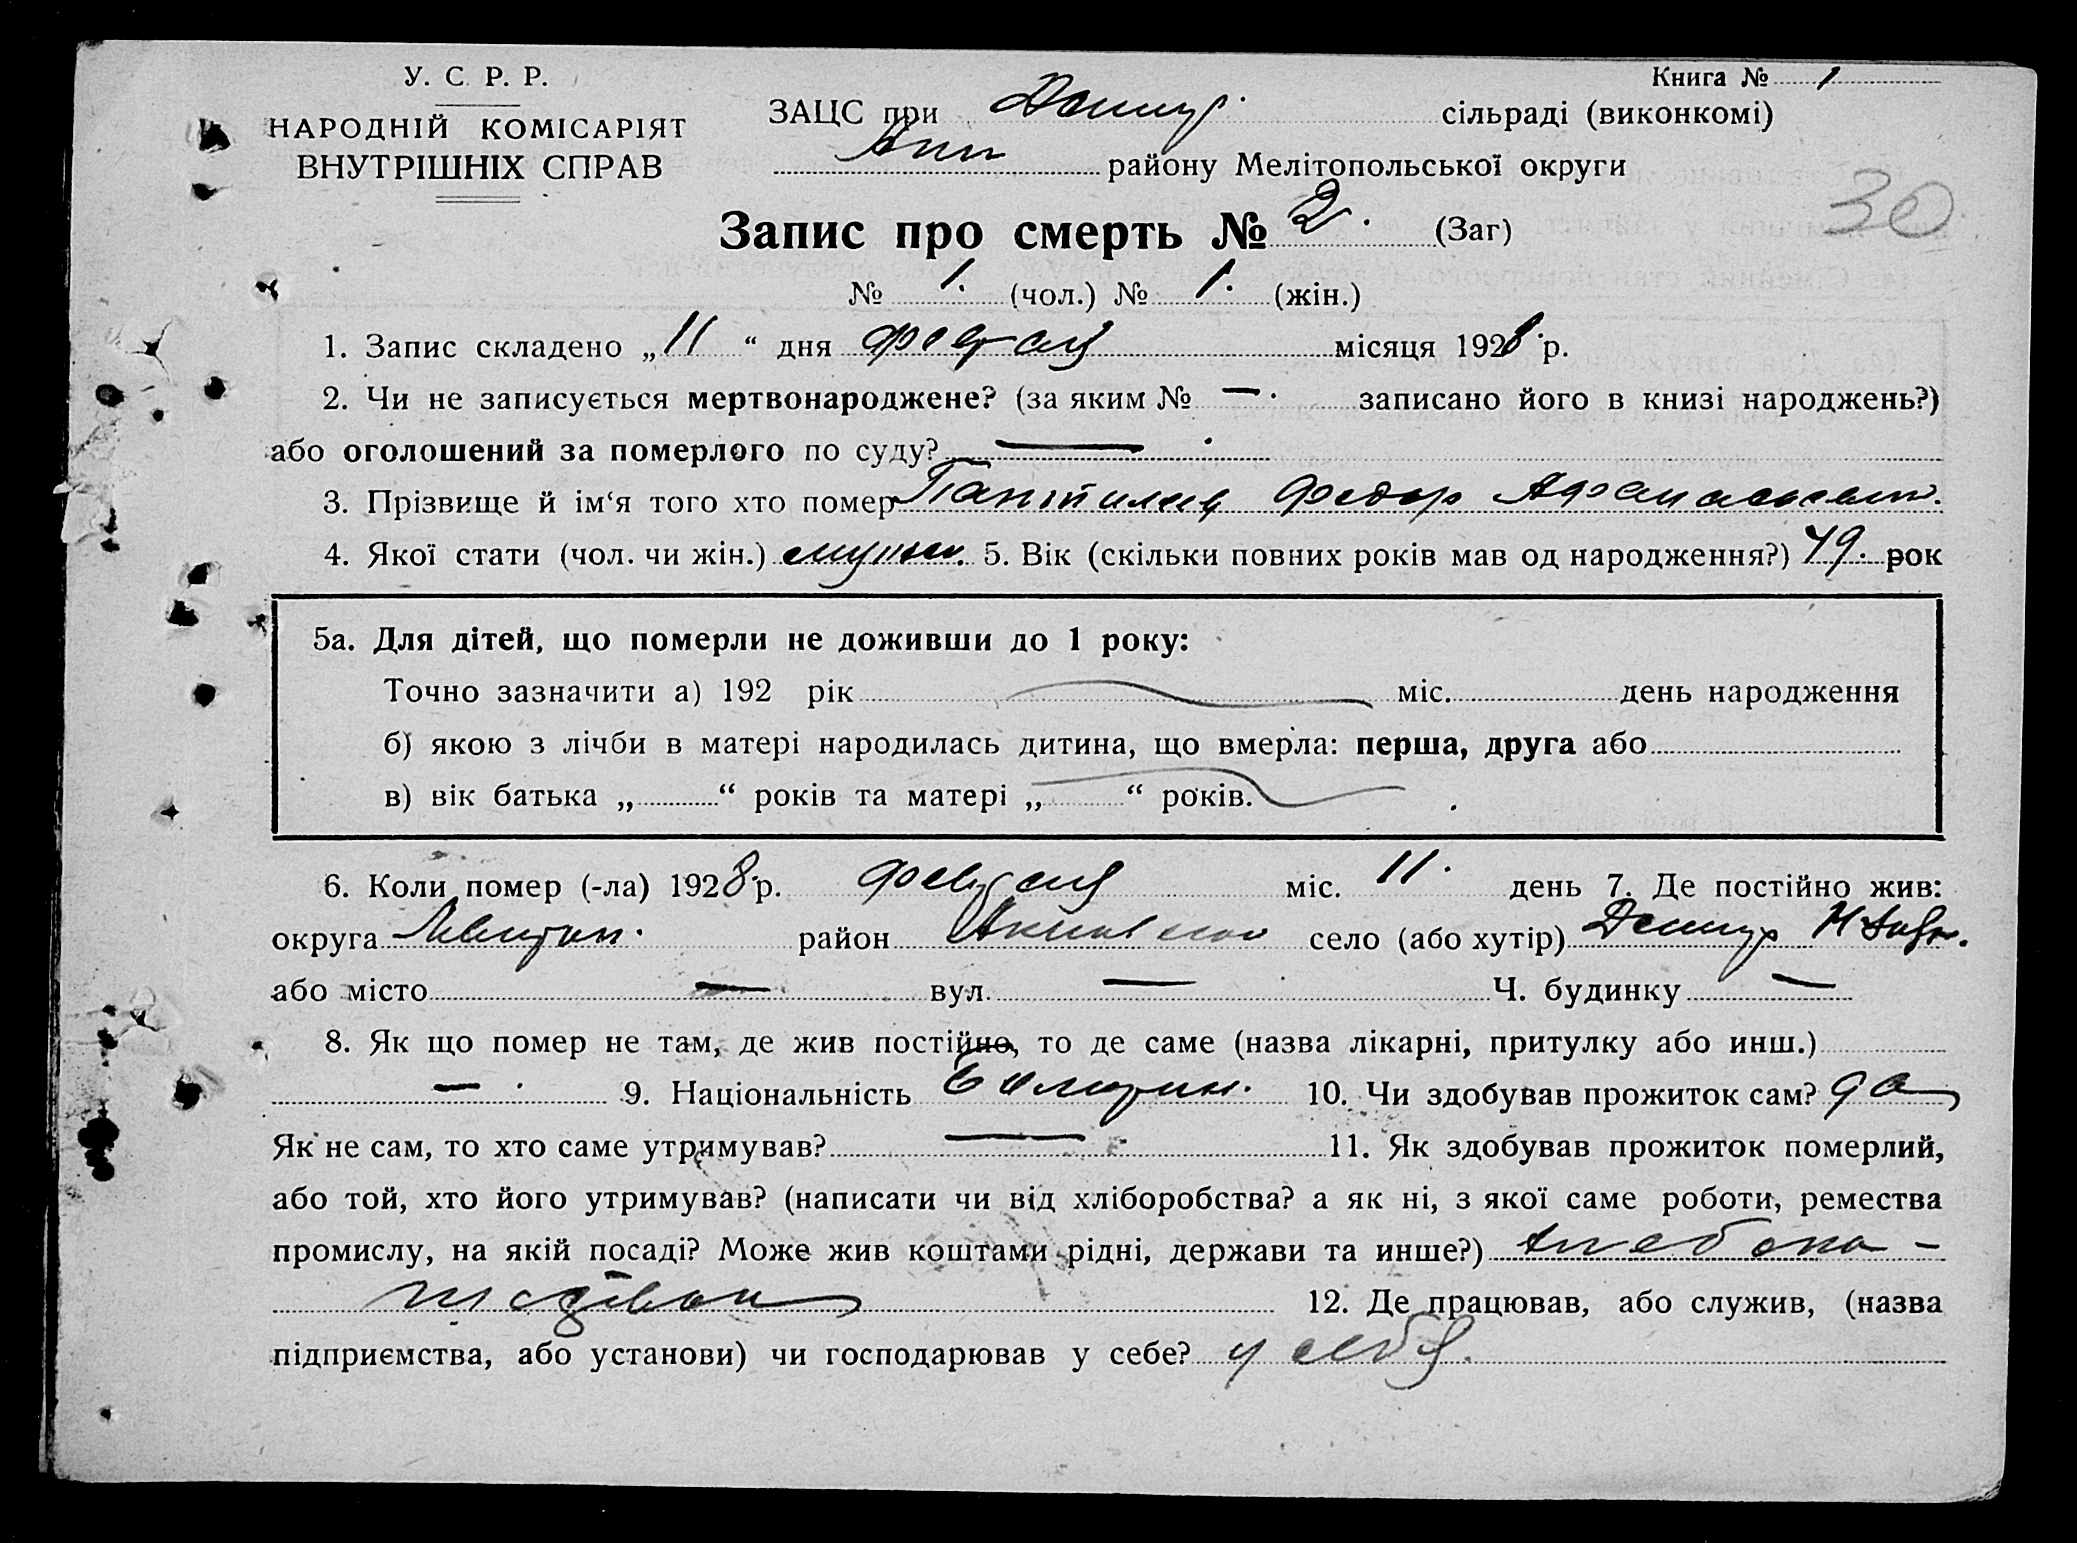 У. С. Р. Р.
НАРОДНІЙ КОМІСАРІЯТ
ВНУТРІШНІХ СПРАВ
Книга № 1
ЗАЦС при сільраді (виконкомі)
району Мелітопольської округи
30
Запис про смерть № 2. (Заг)
№ 1. (чол.) № 1. (жін.)
1. Запис складено „11“ дня февраля місяця 1928 р.
2. Чи не записується мертвонароджене? (за яким № — . записано його в книзі народжень?)
або оголошений за померлого по суду? — .
3. Прізвище й ім‘я того хто помер Федор Афанасьевич.
4. Якої стати (чол. чи жін.) 5. Вік (скільки повних років мав од народження?) 49. рок
5а. Для дітей, що померли не доживши до 1 року:
Точно зазначити а) 192 рік міс. день народження
б) якою з лічби в матері народилась дитина, що вмерла: перша, друга або
в) вік батька „ “ років та матері „ “ років.
6. Коли помер (-ла) 1928 р. февраля міс. 11. день 7. Де постійно жив:
округа район село (або хутір)
або місто — вул. — Ч. будинку —
8. Як що помер не там, де жив постійно, то де саме (назва лікарні, притулку або инш.)
— . 9. Національність 10. Чи здобував прожиток сам? да
Як не сам, то хто саме утримував? — 11. Як здобував прожиток померлий,
або той, хто його утримував? (написати чи від хліборобства? а як ні, з якої саме роботи, ремества
промислу, на якій посаді? Може жив коштами рідні, держави та инше?) хлебопа-
12. Де працював, або служив, (назва
підприємства, або установи) чи господарював у себе? у себя.